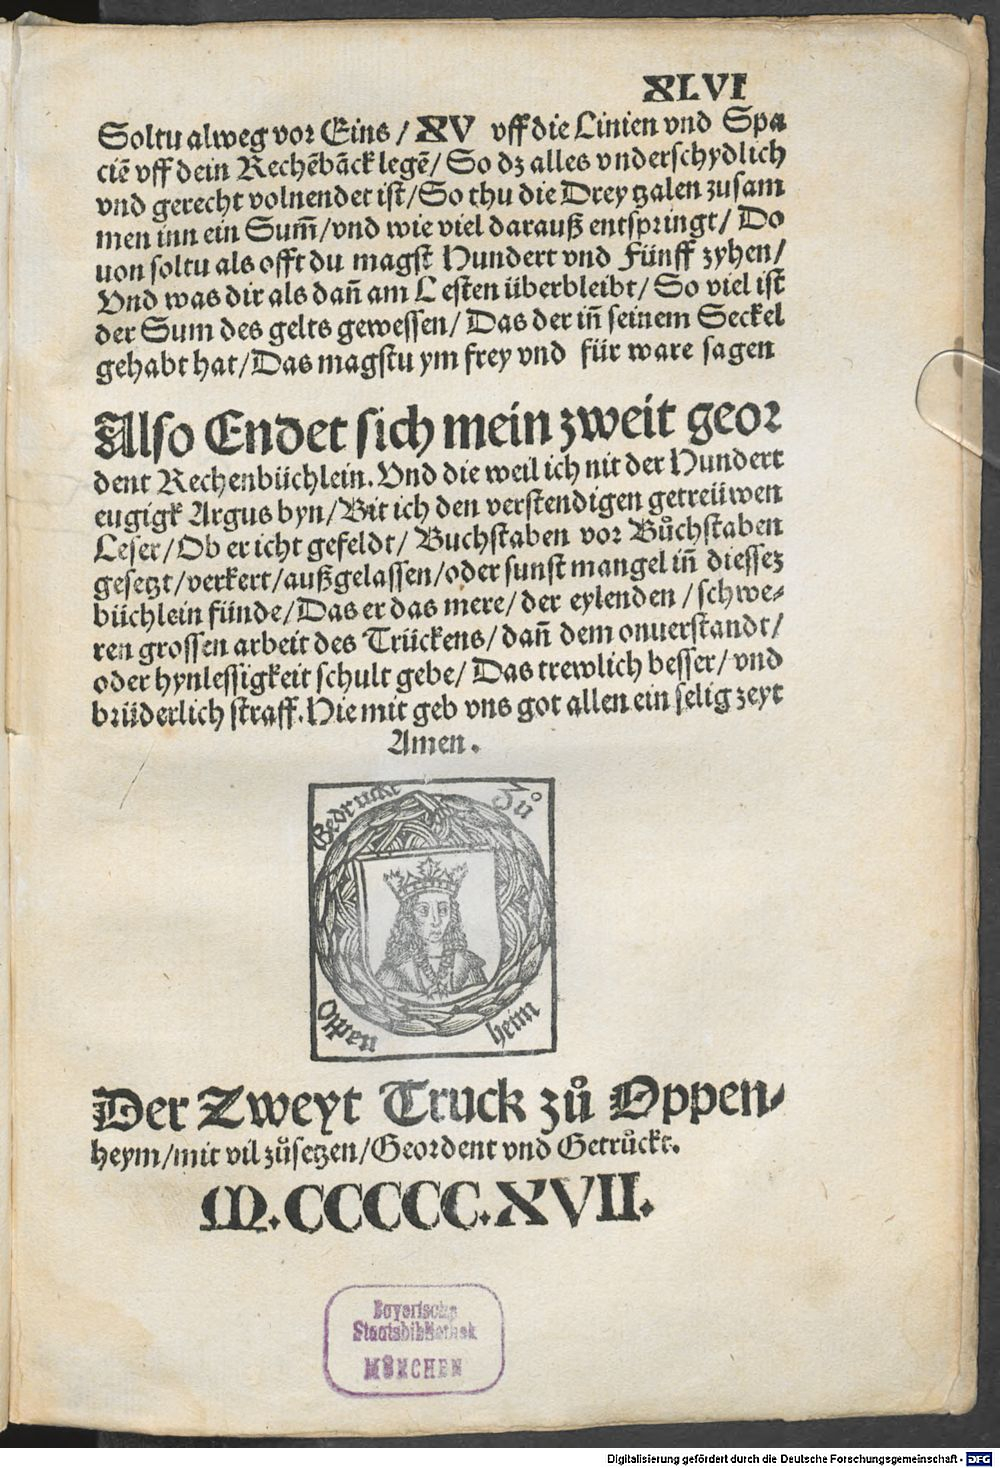 XLVI
Soltu alweg vor Eins / XV vff die Linien vnd Spa
ciē vff dein Rechēbāck legē / So dz alles vnderschydlich
vnd gerecht volnendet ist / So thu die Drey tzalen zusam
men inn ein Sum̄ / vnd wie viel darauß entspringt / Do
uon soltu als offt du magst Hundert vnd Fünff zyhen /
Vnd was dir als dañ am Lesten überbleibt / So viel ist
der Sum des gelts gewessen / Das der iñ seinem Seckel
gehabt hat / Das magstu ym frey vnd für ware sagen
Also Endet sich mein zweit geor
dent Rechenbüchlein. Vnd die weil ich nit der Hundert
eugigk Argus byn / Bit ich den verstendigen getreüwen
Leser / Ob er icht gefeldt / Buchstaben vor Bůchstaben
gesetzt / verkert / außgelassen / oder sunst mangel iñ diessez
büchlein fünde / Das er das mere / der eylenden / schwe-
ren grossen arbeit des Trückens / dañ dem onuerstandt /
oder hynlessigkeit schult gebe / Das trewlich besser / vnd
brüderlich straff. Hie mit geb vns got allen ein selig zeyt
Amen.
Gedruckt Zů
Oppen heim
Der Zweyt Truck zů Oppen-
heym / mit vil zůsetzen / Geordent vnd Getrůckt.
M.CCCCC.XVII.
Bayerische
Staatsbibliothek
MÜNCHEN
Digitalisierung gefördert durch die Deutsche Forschungsgemeinschaft - DFG